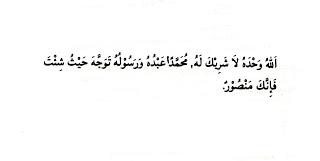 اَللهُ وَحْدَهُ لاَ شَرِيْكَ لَهُ, مُحَمَّدًا عَبْدُهُ وَرَسُوْلُهُ تَوَجَّهَ حَيْثُ شِئْتَ
فَإِنَّكَ مَنْصُوْرٌ.